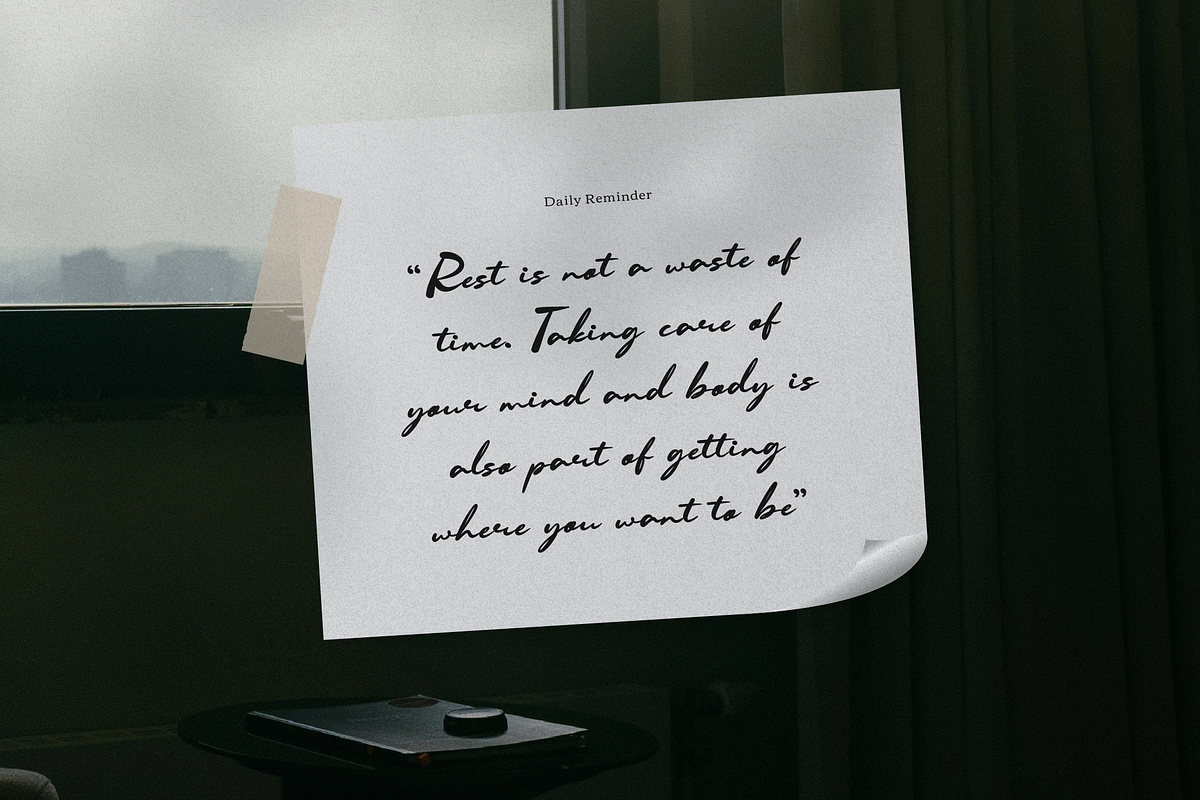 Daily Reminder
“Rest is not a waste of
time. Taking care of
your mind and body is
also part of getting
where you want to be”